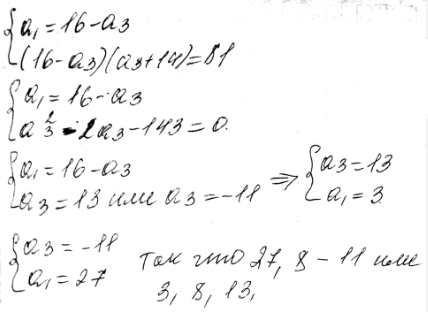 {a₁=16-a₃
{(16-a₃)(a₃+14)=81
{a₁=16-a₃
{a₃²-2a₃-143=0.
{a₁=16-a₃
{a₃=13 или a₃=-11 ⇒ {a₃=13
{a₁=3
{a₃=-11
{a₁=27
Так что 27, 8 - 11 или
3, 8, 13,